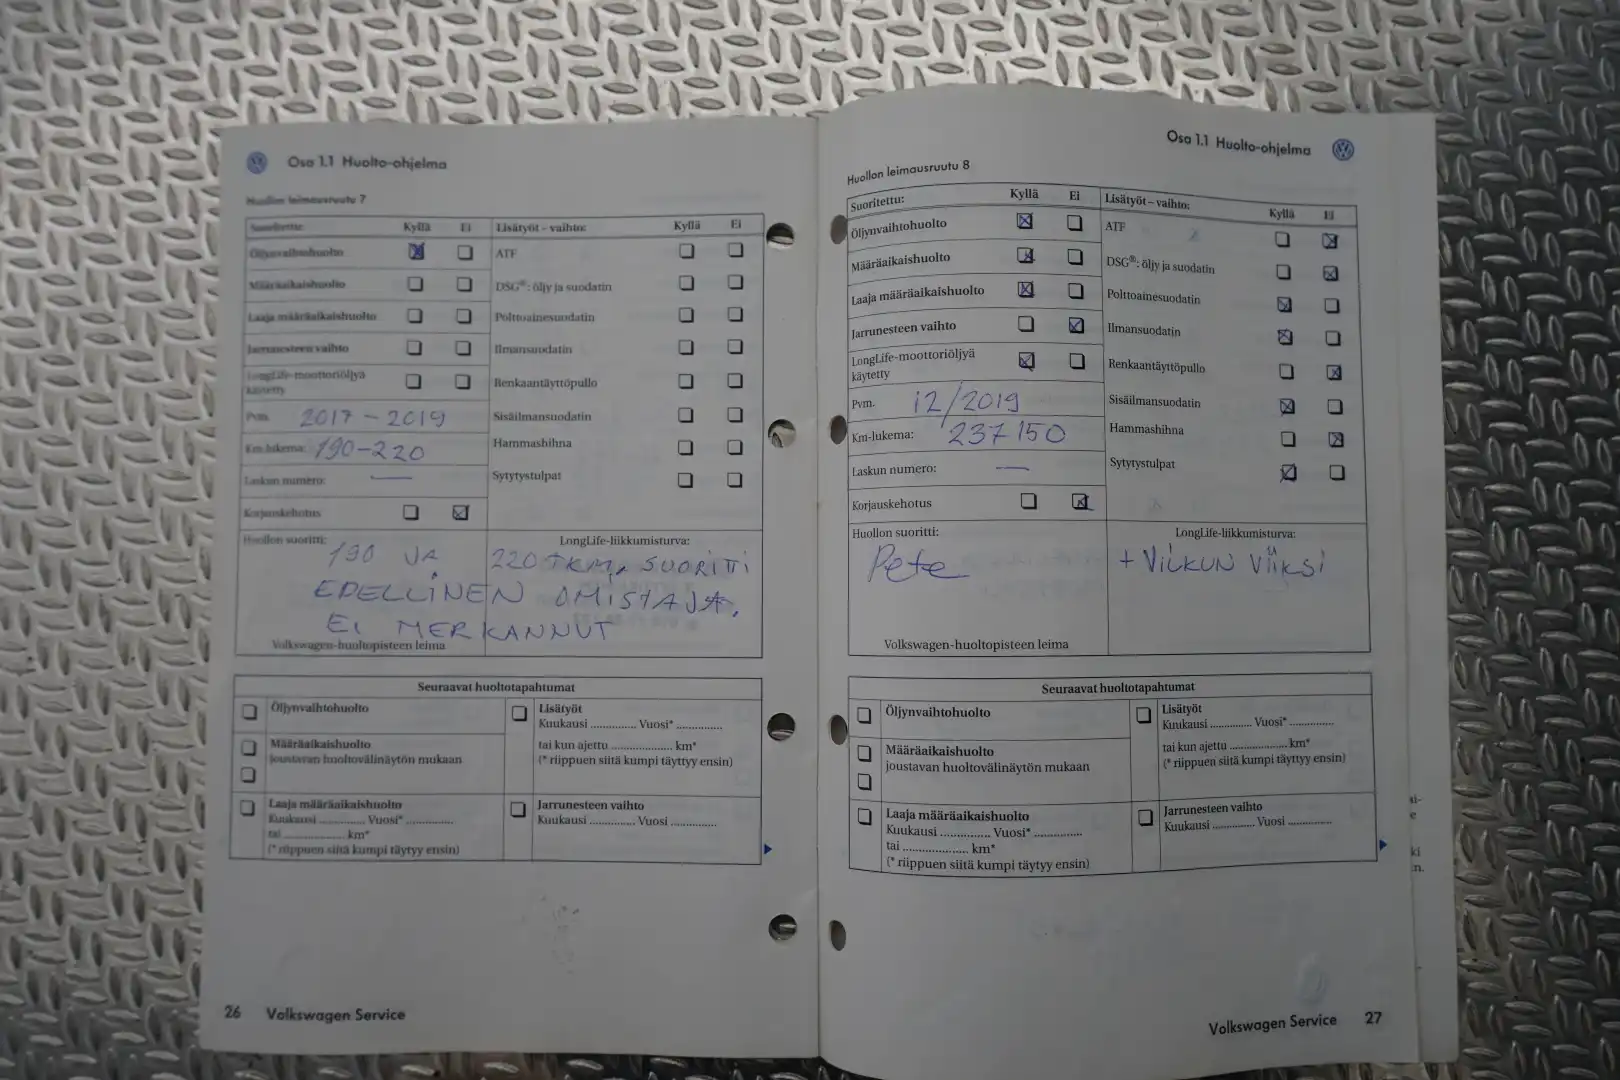 Osa 1.1 Huolto-ohjelma
Huollon leimausruutu 7
Suoritettu: Kyllä Ei Lisätyöt – vaihto: Kyllä Ei
Öljynvaihtohuolto ATF
Määräaikaishuolto DSG®: öljy ja suodatin
Laaja määräaikaishuolto Polttoainesuodatin
Jarrunesteen vaihto Ilmansuodatin
LongLife-moottoriöljyä käytetty Renkaantäyttöpullo
Pvm. 2017 – 2019 Sisäilmansuodatin
Km-lukema: 190-220 Hammashihna
Laskun numero: — Sytytystulpat
Korjauskehotus
Huollon suoritti: LongLife-liikkumisturva:
190 JA 220 TKM, SUORITTI
EDELLINEN OMISTAJA,
EI MERKANNUT
Volkswagen-huoltopisteen leima
Seuraavat huoltotapahtumat
Öljynvaihtohuolto
Lisätyöt
Kuukausi .............. Vuosi* ..............
tai kun ajettu ..................... km*
(* riippuen siitä kumpi täyttyy ensin)
Määräaikaishuolto
joustavan huoltovälinäytön mukaan
Laaja määräaikaishuolto
Kuukausi .............. Vuosi* ..............
tai .................... km*
(* riippuen siitä kumpi täytyy ensin)
Jarrunesteen vaihto
Kuukausi .............. Vuosi ..............
26 Volkswagen Service
Osa 1.1 Huolto-ohjelma
Huollon leimausruutu 8
Suoritettu: Kyllä Ei Lisätyöt – vaihto: Kyllä Ei
Öljynvaihtohuolto ATF
Määräaikaishuolto DSG®: öljy ja suodatin
Laaja määräaikaishuolto Polttoainesuodatin
Jarrunesteen vaihto Ilmansuodatin
LongLife-moottoriöljyä Renkaantäyttöpullo
käytetty
Pvm. 12/2019 Sisäilmansuodatin
Km-lukema: 237 150 Hammashihna
Laskun numero: — Sytytystulpat
Korjauskehotus
Huollon suoritti: LongLife-liikkumisturva:
Pete + VILKUN VIIKSI
Volkswagen-huoltopisteen leima
Seuraavat huoltotapahtumat
Öljynvaihtohuolto
Lisätyöt
Kuukausi .............. Vuosi* ..............
tai kun ajettu ..................... km*
(* riippuen siitä kumpi täyttyy ensin)
Määräaikaishuolto
joustavan huoltovälinäytön mukaan
Laaja määräaikaishuolto
Kuukausi .............. Vuosi* ..............
tai .................... km*
(* riippuen siitä kumpi täytyy ensin)
Jarrunesteen vaihto
Kuukausi .............. Vuosi ..............
Volkswagen Service 27